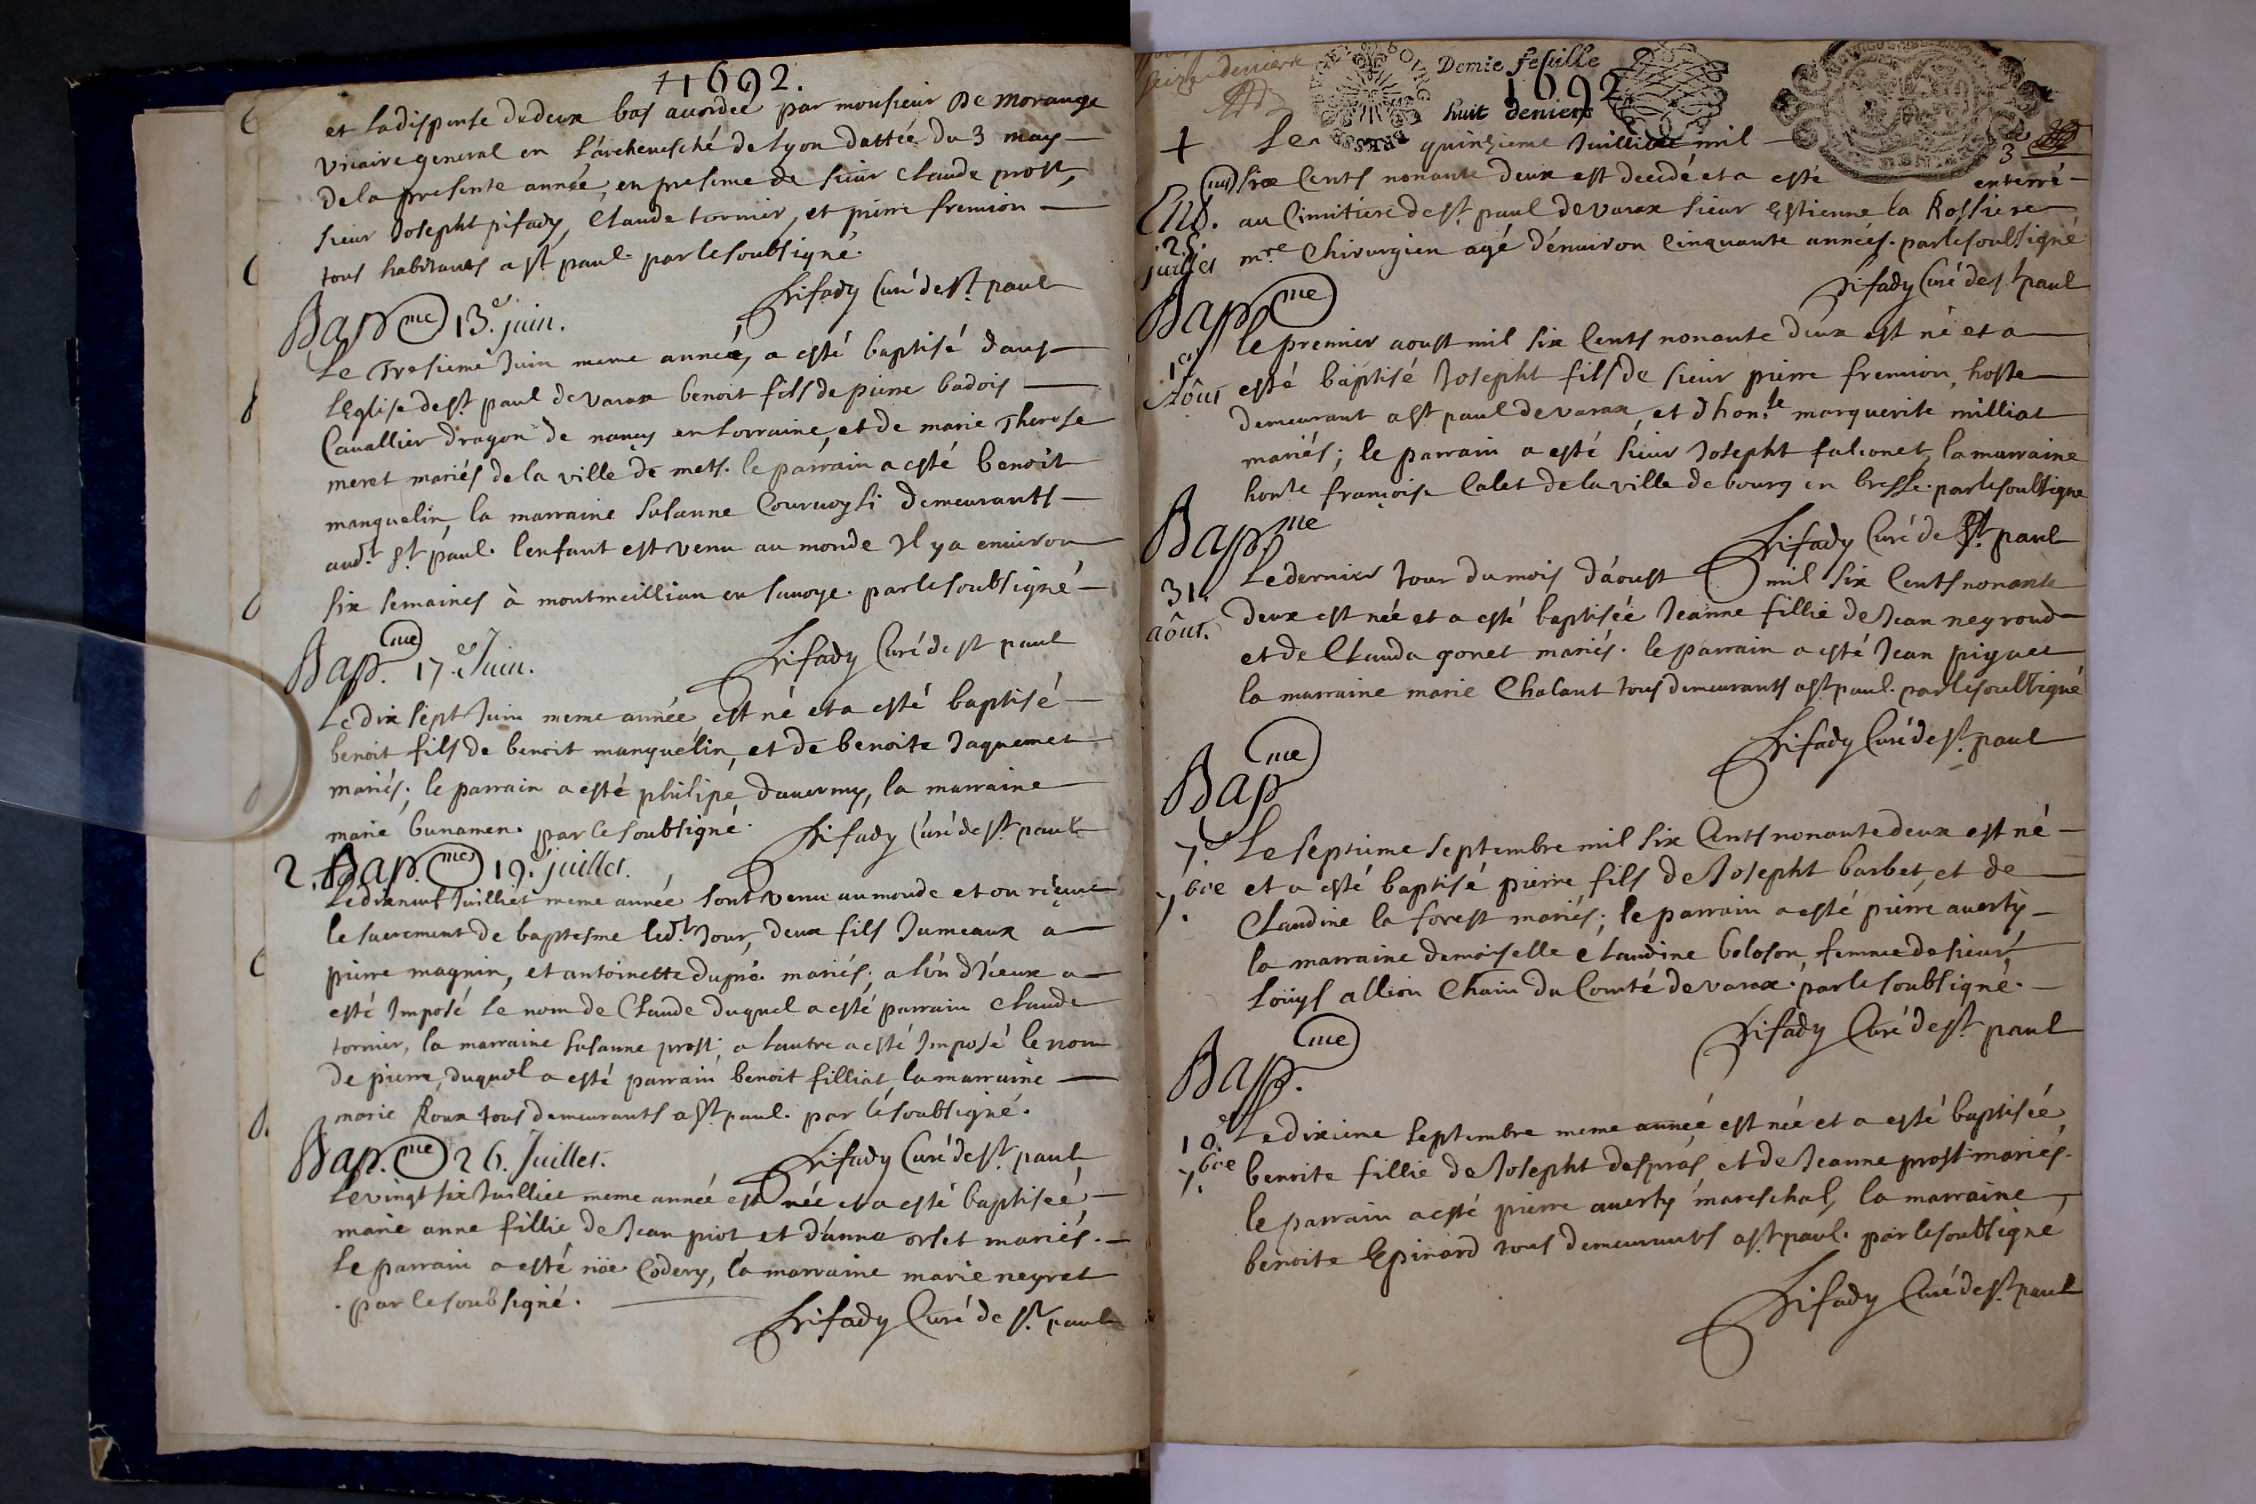 + 1692.
et la dispense de deux bas accordée par monsieur De Morange
vicaire general en l'archevesché de Lyon dattée du 3 may
de la presente année, en presence de sieur Claude prost,
sieur Josepht pifady, Claude tornier, et pierre fremion
tous habitants a st paul. par le soubsigné.
pifady Curé de st paul
Bap.me 13.e juin.
Le Tresieme Juin meme année, a esté baptisé dans
l'Eglise de st paul de varax benoit fils de pierre badois
Cavallier dragon de nancy en Lorraine, et de marie Therese
meret mariés de la ville de mets. le parrain a esté benoit
manguelin, la marraine Susanne Courvoysi demeurants
aud.t st paul. l'enfant est venu au monde Il y a environ
six semaines à montmeillian en Savoye. par le soubsigné
pifady Curé de st paul
Bap.me 17.e Juin.
Le dix sept Juin meme année est né et a esté baptisé
benoit fils de benoit manguelin, et de benoite Jaquemet
mariés; le parrain a esté philipe dauermy, la marraine
marie bunamen. par le soubsigné.
pifady Curé de st paul
2. Bap.mes 19. juillet.
Le dixneuf Juilliet meme année sont venu au monde et on réçeut
le sacrement de baptesme led.t Jour, deux fils Jumeaux a
pierre magnin, et antoinette dupré mariés; a l'un d'iceux a
esté Imposé le nom de Claude duquel a esté parrain Claude
tornier, la marraine Susanne prost; a l'autre a esté Imposé le nom
de pierre, duquel a esté parrain benoit filliat, la marraine
marie Roux tous demeurants a st paul. par le soubsigné.
pifady Curé de st paul
Bap.me 26. Juillet.
Le vingt six Juilliet meme année est née et a esté baptiseé,
marie anne fillie de Jean piot et d'anna orset mariés.
Le parrain a esté nöe Codery, la marraine marie neyret
. par le soubsigné.
pifady Curé de st paul
Demie feüille
1692
huit deniers
+ Le quinzieme Juilliet mil
six Cents nonante deux est decedé et a esté enterré
Ent. au Cimitiere de st paul de varax sieur Estienne la Rossiere
25. juillet
mre Chirurgien agé d'environ Cinquante années. par le soubsigné
pifady Curé de st paul
Bap.me
le premier aoust mil six Cents nonante deux est né et a
1er Aôut
esté baptisé Josepht fils de sieur pierre fremion, hoste
demeurant a st paul de varax, et d'hon.te marguerite milliat
mariés; le parrain a esté sieur Josepht falconet, la marraine
honte françoise Calet de la ville de bourg en bresse. par le soubsigné
pifady Curé de st paul
Bap.me
31. aôut.
Le dernier Jour du mois d'aoust mil six Cents nonante
deux est née et a esté baptisée Jeanne fillie de Jean neyroud
et de Clauda gonet mariés. le parrain a esté Jean piguet
la marraine marie Chalant tous demeurants a st paul. par le soubsigné
pifady Curé de st paul
Bap.me
7.e 7.bre
Le septieme septembre mil six Cents nonante deux est né
et a esté baptisé pierre fils de Josepht barbet, et de
Claudine la forest mariés; le parrain a esté pierre averty
la marraine demoiselle Claudine boloson, femme de sieur
Loüys allion Chain du Comté de varax. par le soubsigné.
pifady Curé de st paul
Bap.me
10.e 7.bre
Le dixieme septembre meme année est née et a esté baptisée,
benoite fillie de Josepht despras et de Jeanne prost mariés.
le parrain a esté pierre averty mareschal, la marraine
benoite Epinard tous demeurants a st paul. par le soubsigné
pifady Curé de st paul